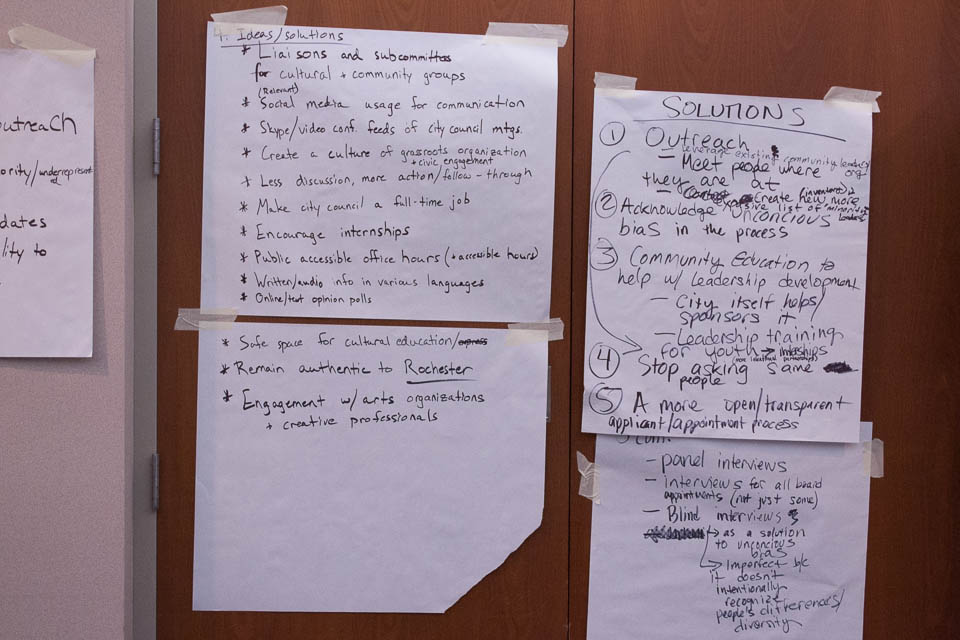 outreach
ority/underrepresent
dates
lity to
4. Ideas/solutions
* Liaisons and subcommittees
for cultural + community groups
(Relevant)
* Social media usage for communication
* Skype/video conf. feeds of city council mtgs.
* Create a culture of grassroots organization
+ civic engagement
* Less discussion, more action/follow-through
* Make city council a full-time job
* Encourage internships
* Public accessible office hours (+ accessible hours)
* Written/audio info in various languages
* Online/text opinion polls
* Safe space for cultural education/
* Remain authentic to Rochester
* Engagement w/ arts organizations
+ creative professionals
SOLUTIONS
① Outreach
leverage existing community leaders/
org
- Meet people where
they are at
- Create new more
(inventory)
expansive list of minority
leaders
② Acknowledge unconcious
bias in the process
③ Community Education to
help w/ Leadership development
- City itself helps/
sponsors it
- Leadership training
for youth → internships
④ Stop asking same
people
⑤ A more open/transparent
applicant/appointment process
5 cont.
- panel interviews
- interviews for all board
appointments (not just some)
- Blind interviews
→ as a solution
to unconcious
bias
→ Imperfect b/c
it doesn't
intentionally
recognize
people's differences/
diversity